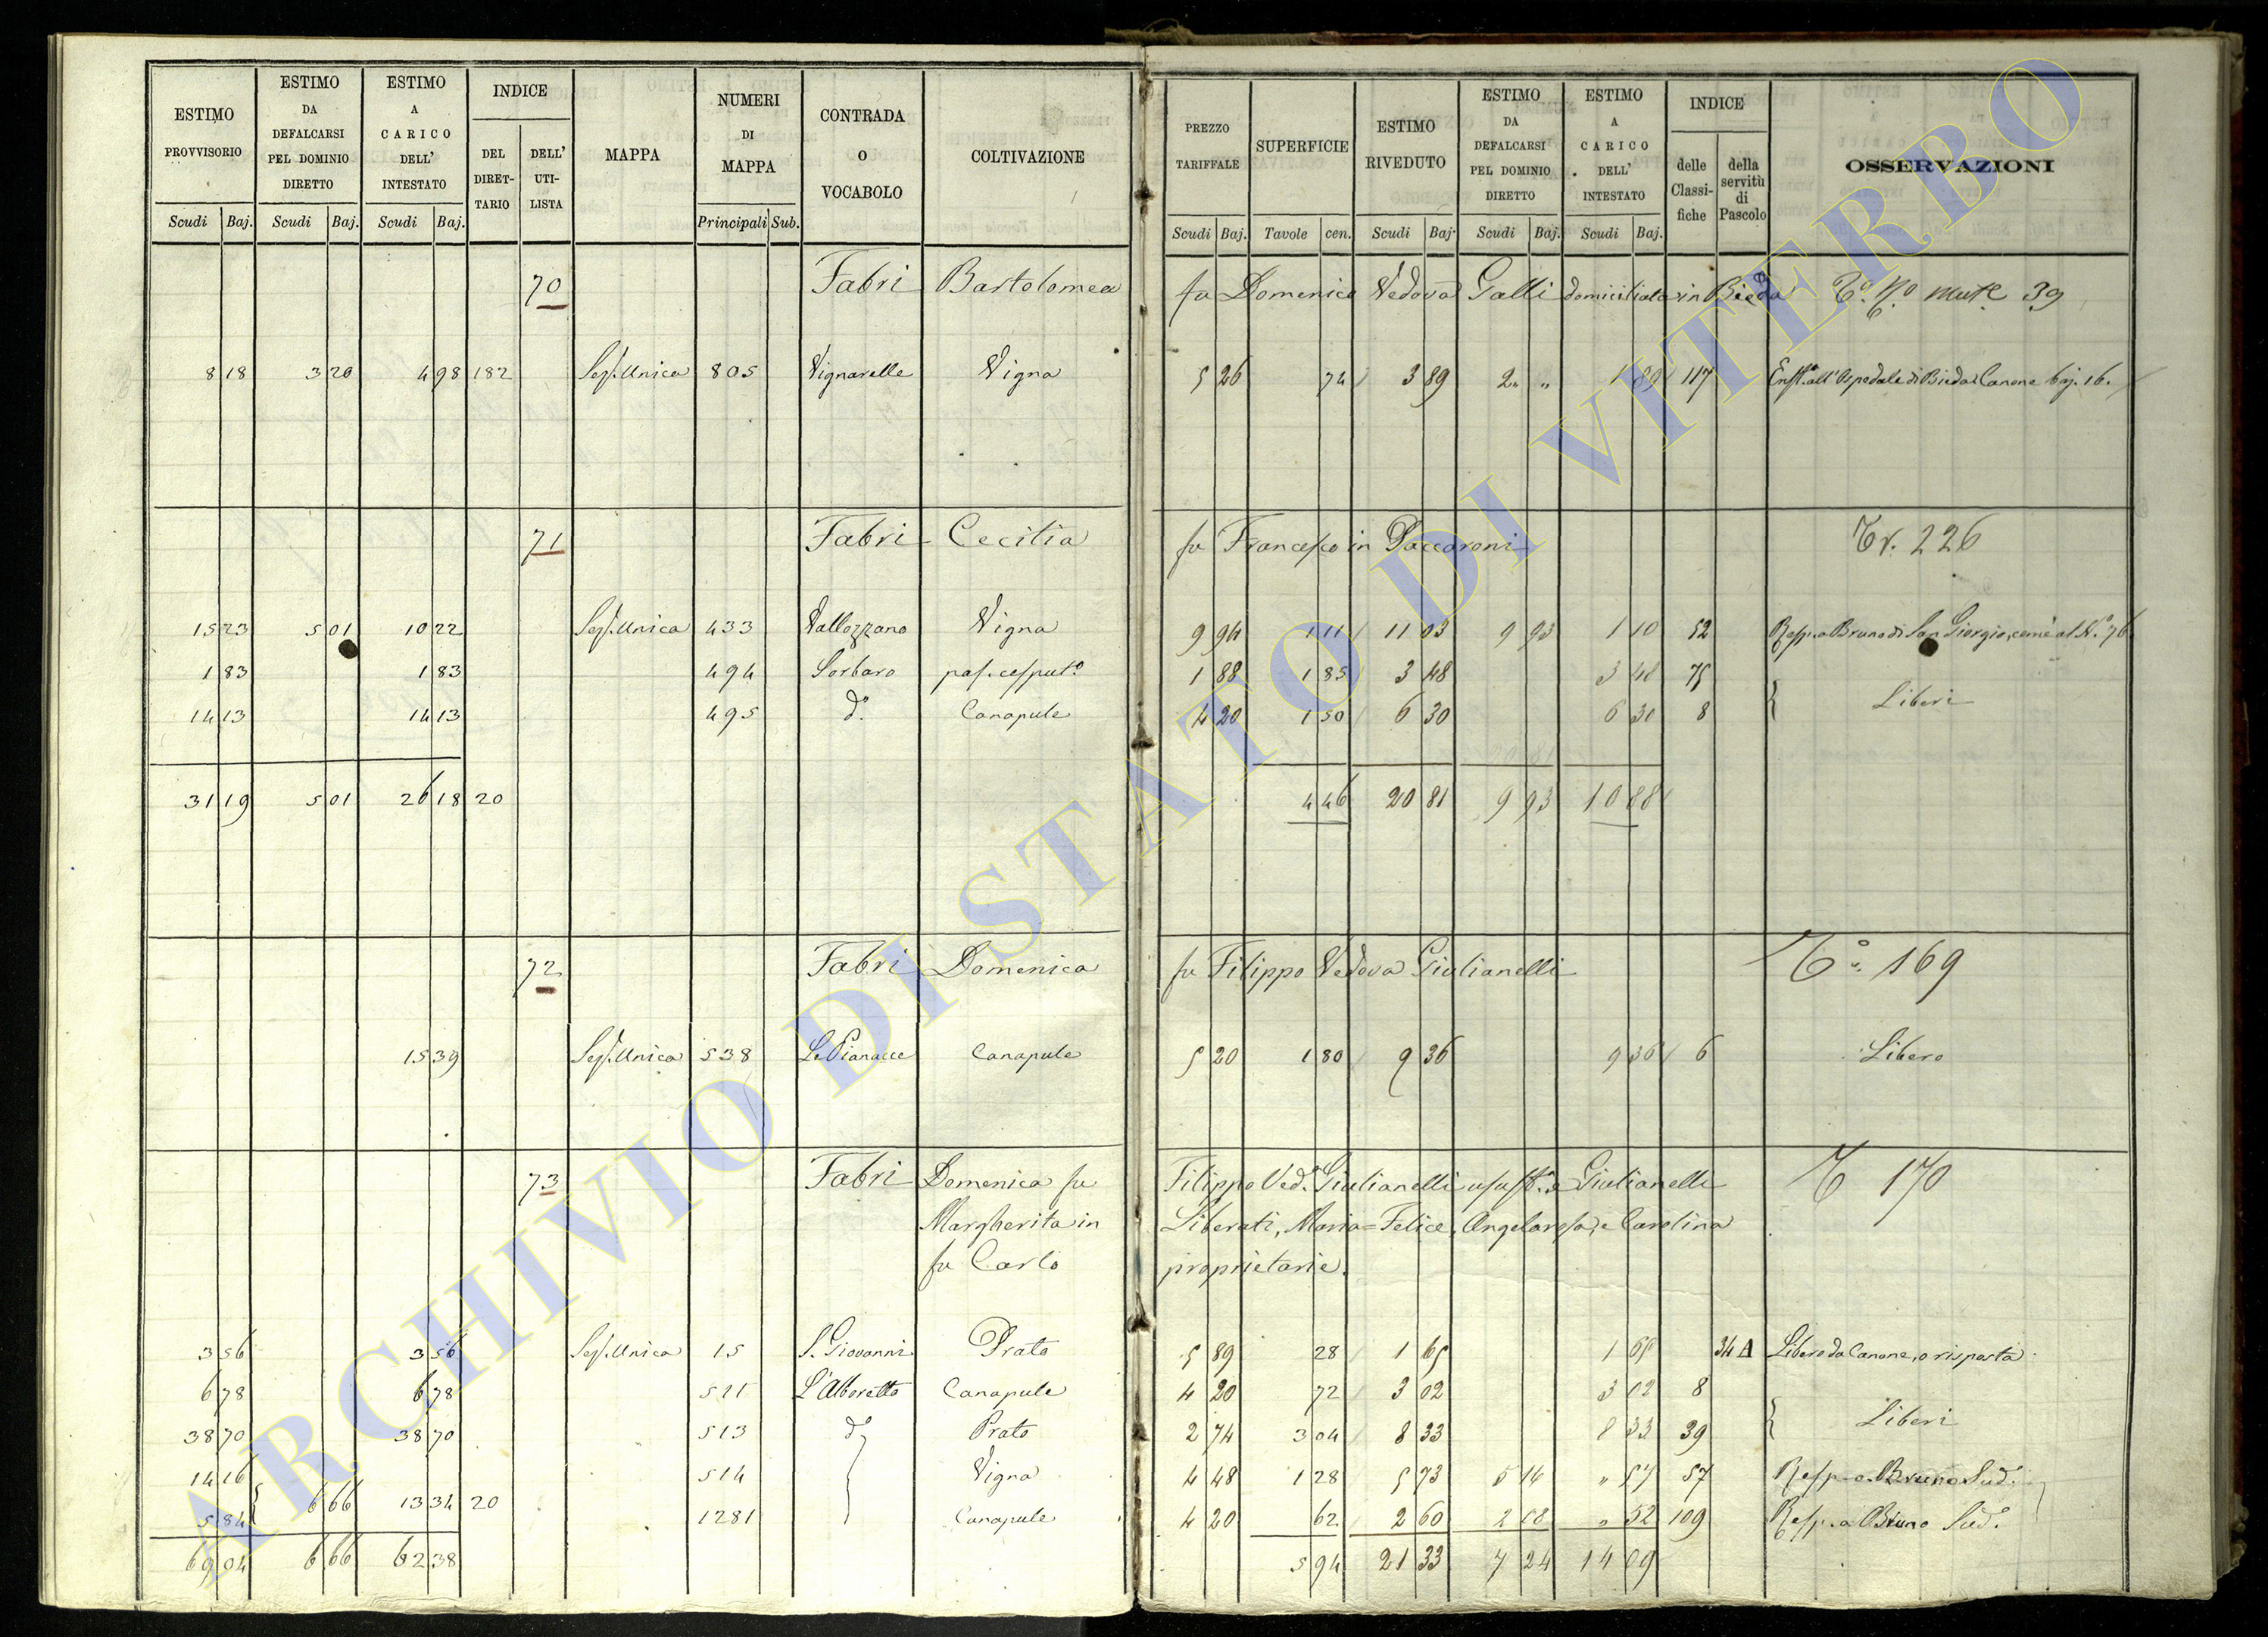 ESTIMO PROVVISORIO Scudi Baj.
ESTIMO DA DEFALCARSI PEL DOMINIO DIRETTO Scudi Baj.
ESTIMO A CARICO DELL' INTESTATO Scudi Baj.
INDICE DEL DIRET-TARIO DELL' UTI-LISTA
MAPPA
NUMERI DI MAPPA Principali Sub.
CONTRADA O VOCABOLO
COLTIVAZIONE
PREZZO TARIFFALE Scudi Baj.
SUPERFICIE Tavole cen.
ESTIMO RIVEDUTO Scudi Baj.
ESTIMO DA DEFALCARSI PEL DOMINIO DIRETTO Scudi Baj.
ESTIMO A CARICO DELL' INTESTATO Scudi Baj.
INDICE delle Classi-fiche della servitù di Pascolo
OSSERVAZIONI
70 Fabri Bartolomea fu Domenico Vedova Galli domiciliata in Bieda 39
8 18 3 20 4 98 182 Sez. Unica 805 Vignarelle Vigna 5 26 74 3 89 2 " " 1 89 117 Enft. all' Ospedale di Bieda Canone baj. 16.
71 Fabri Cecilia fu Francesco in Paccaroni Tr. 226
15 23 5 01 10 22 Sez. Unica 433 Vallozzano Vigna 9 94 1 11 11 03 9 93 1 10 52 Resp. a Bruno di San Giorgio, come al N.° 76
1 83 1 83 494 Sorbaro pas. cesput.° 1 88 1 85 3 48 3 48 75
14 13 14 13 495 d.° Canapule 4 20 1 50 6 30 6 30 8 Liberi
31 19 5 01 26 18 20 4 46 20 81 9 93 10 88
72 Fabri Domenica fu Filippo Vedova Giulianelli T.° 169
15 39 Sez. Unica 538 Le Pianacce Canapule 5 20 1 80 9 36 9 36 6 Libero
73 Fabri Domenica fu Filippo Ved. Giulianelli usuf. e Giulianelli T 170
Margherita in Liberati, Maria=Felice, Angelarosa, e Carolina
fu Carlo proprietarie.
3 56 3 56 Sez. Unica 15 S. Giovanni Prato 5 89 28 1 65 1 65 34 A Libero da Canone, o risposta
6 78 6 78 511 L'Alboretto Canapule 4 20 72 3 02 3 02 8
38 70 38 70 513 d.° Prato 2 74 3 04 8 33 8 33 39 Liberi
14 16 514 Vigna 4 48 1 28 5 73 5 16 " 57 57 Resp. a Bruno Sud.°
5 84 6 66 13 34 20 1281 Canapule 4 20 62 2 60 2 08 " 52 109 Resp. a Bruno Sud.°
69 04 6 66 62 38 5 94 21 33 7 24 14 09
ARCHIVIO DI STATO DI VITERBO